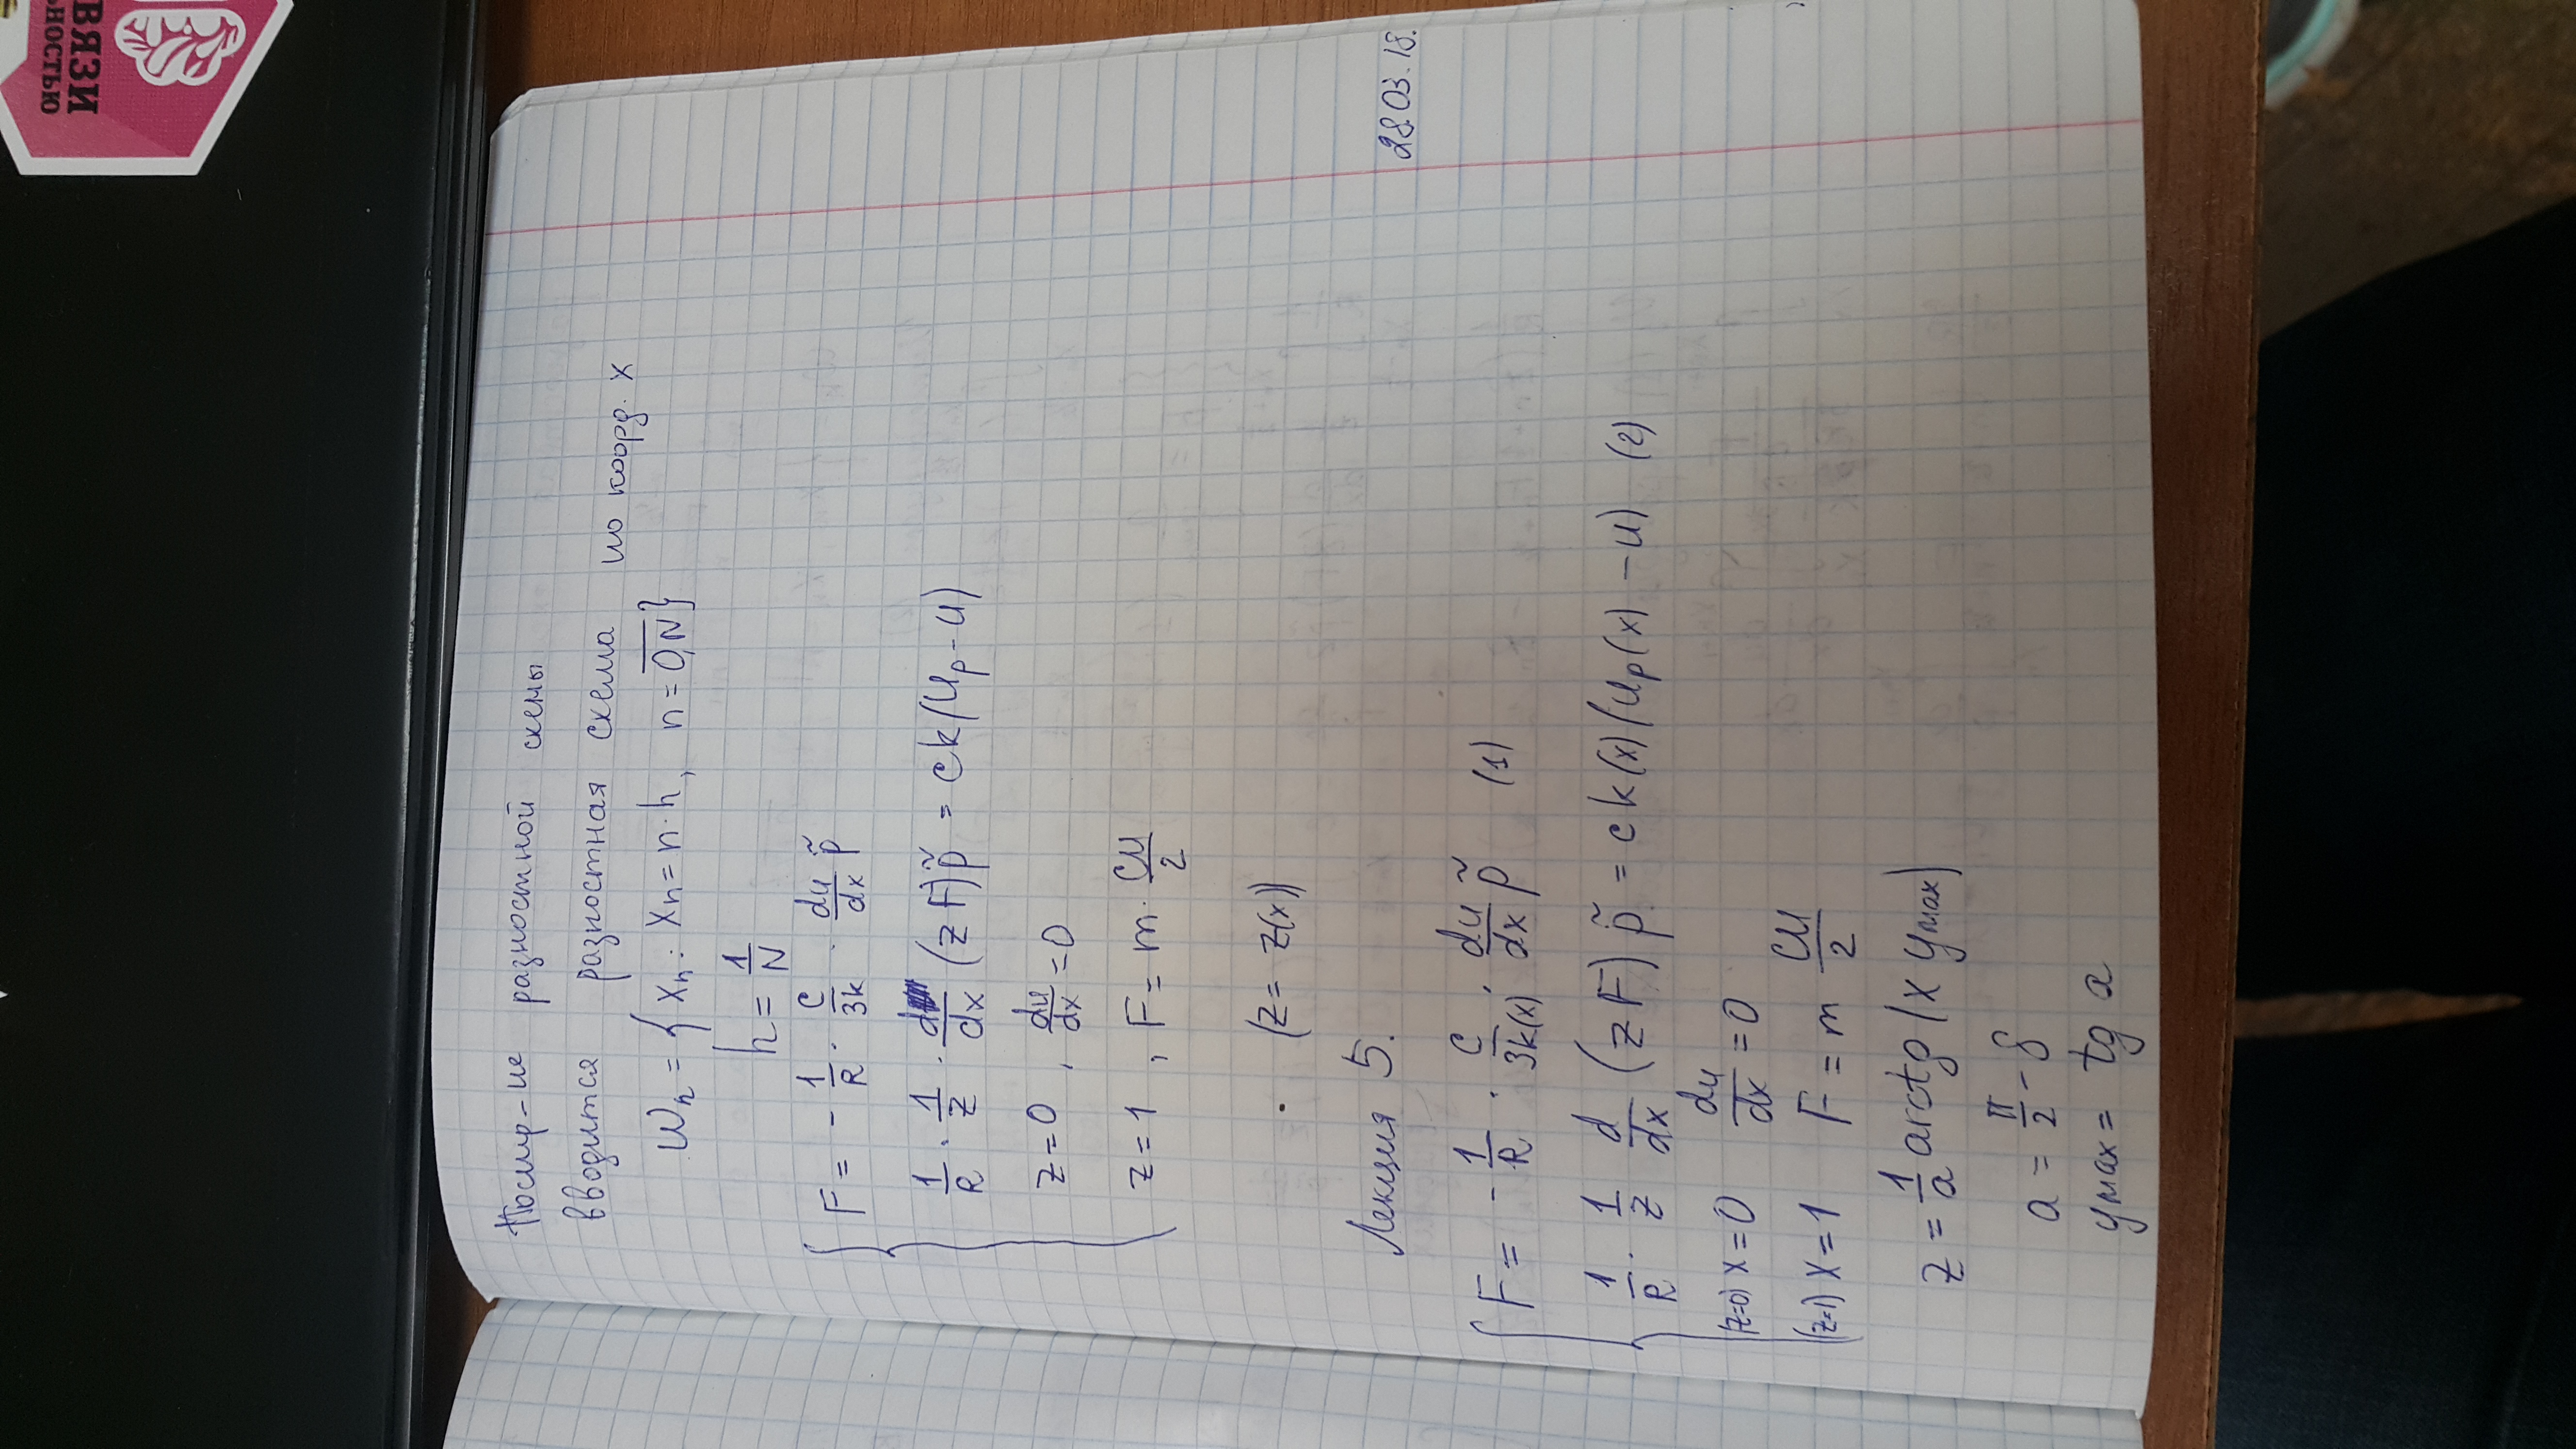 Постр-ие разностной схемы
вводится разностная схема по коорд. x
Wh = { xn : xn = n·h, n = 0,N }
h = 1/N
F = - 1/R · c/3k · du/dx p̃
1/R · 1/z · d/dx (zF)p̃ = ck(up - u)
z = 0, du/dx = 0
z = 1, F = m · cu/2
(z = z(x))
Лекция 5. 28.03.18.
F = - 1/R · c/3k(x) · du/dx p̃ (1)
1/R · 1/z d/dx (zF)p̃ = ck(x)(up(x) - u) (2)
(z=0) x = 0 du/dx = 0
(z=1) x = 1 F = m cu/2
z = 1/a arctg(x ymax)
a = π/2 - δ
ymax = tg a
ВЯЗИ
НОСТЬЮ